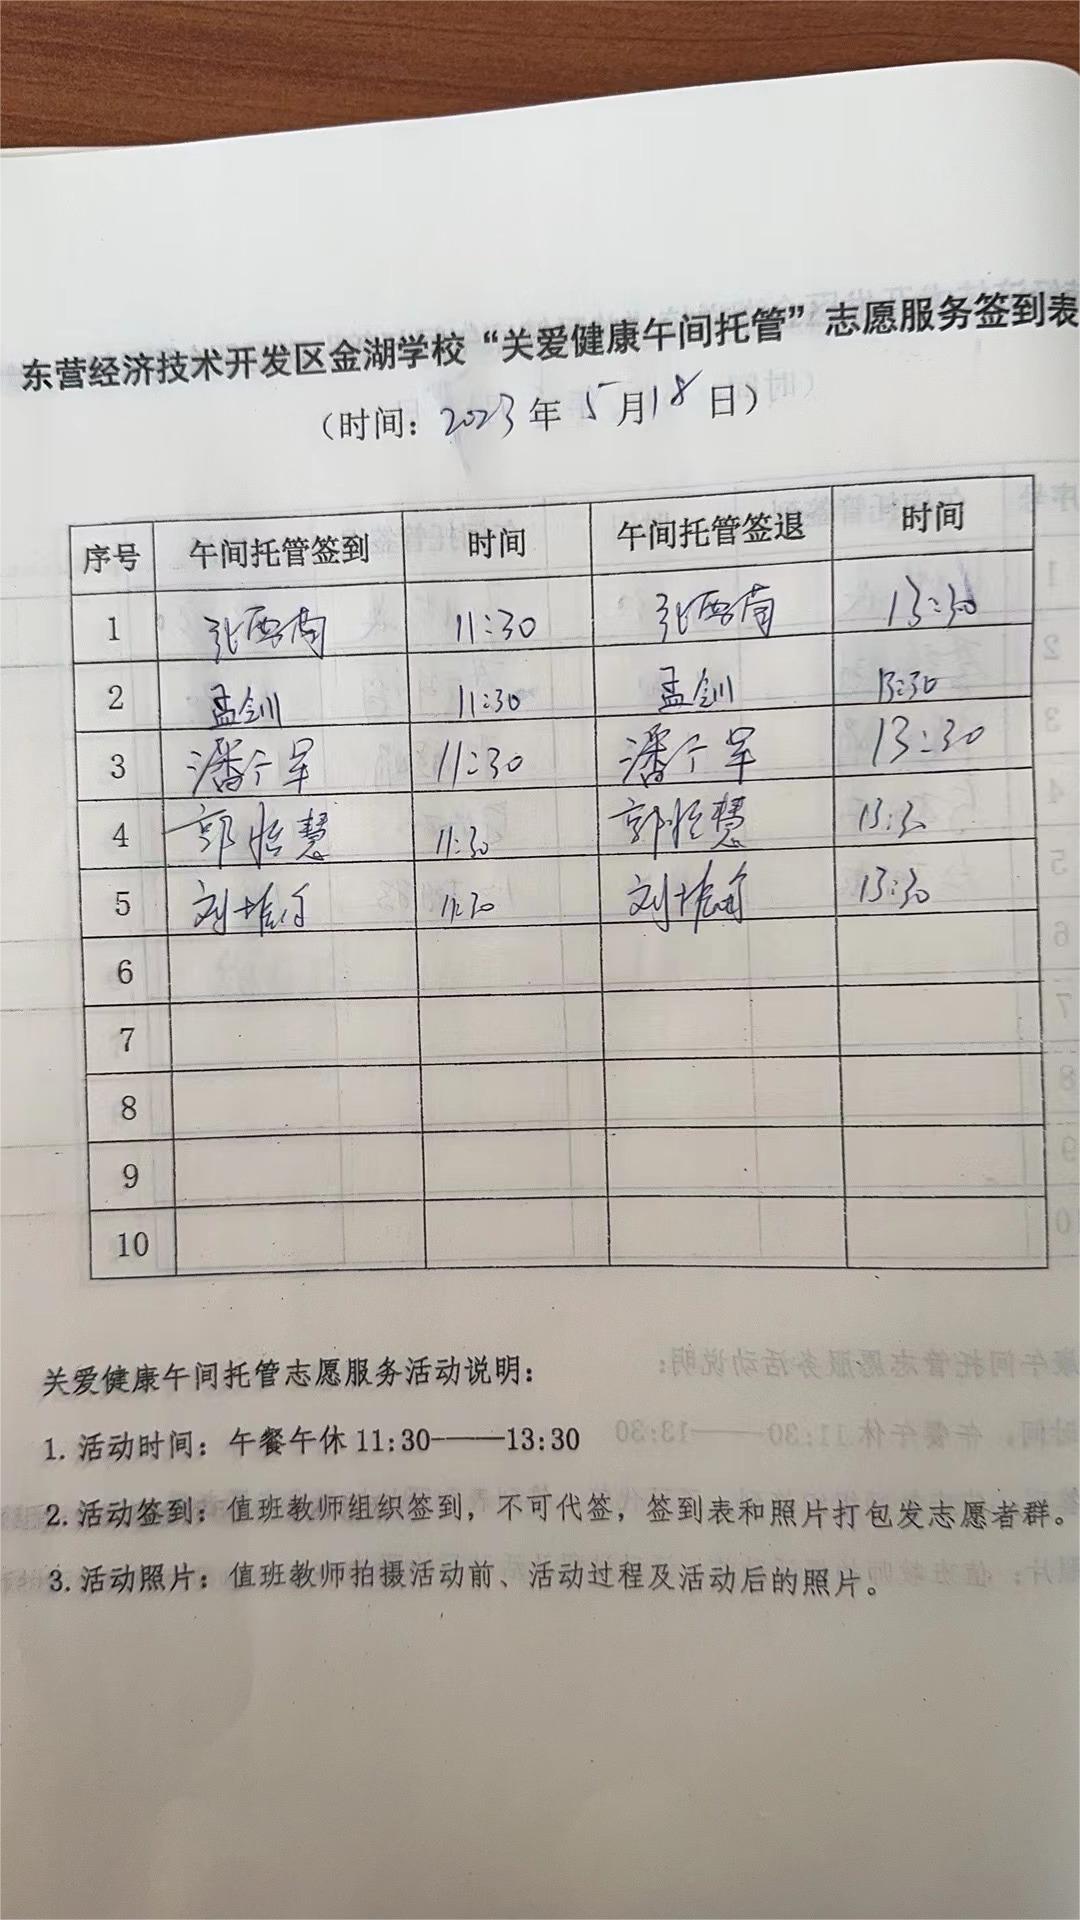 东营经济技术开发区金湖学校“关爱健康午间托管”志愿服务签到表
（时间：2023年5月18日）
序号 午间托管签到 时间 午间托管签退 时间
1 张西南 11:30 张西南 13:30
2 孟钏 11:30 孟钏 13:30
3 潘广军 11:30 潘广军 13:30
4 郭怡慧 11:30 郭怡慧 13:30
5 刘 11:30 刘 13:30
6
7
8
9
10
关爱健康午间托管志愿服务活动说明：
1. 活动时间：午餐午休 11:30——13:30
2. 活动签到：值班教师组织签到，不可代签，签到表和照片打包发志愿者群。
3. 活动照片：值班教师拍摄活动前、活动过程及活动后的照片。